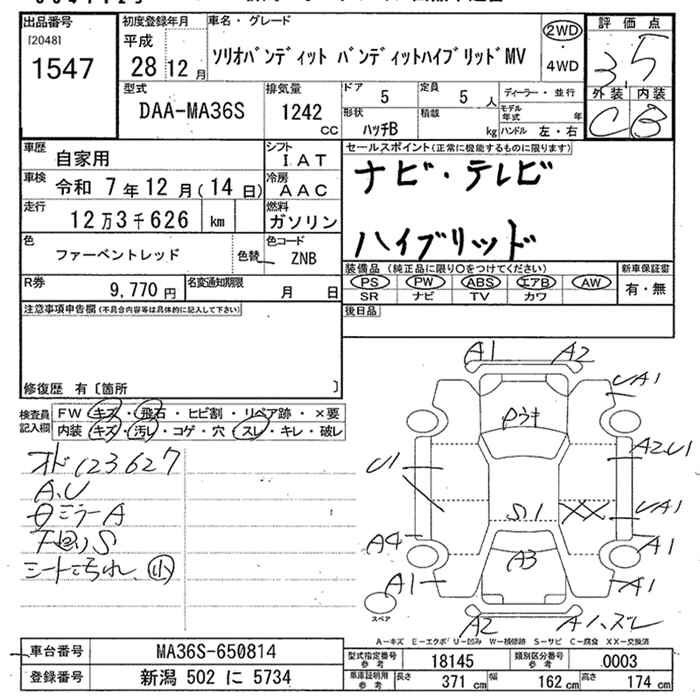 出品番号
[2048]
1547
初度登録年月
平成
28年12月
車名・グレード
ソリオバンディット バンディットハイブリッドMV
2WD
・
4WD
評価点
3.5
外装 内装
C B
型式
DAA-MA36S
排気量
1242 cc
ドア 5
定員 5 人
形状 ハッチB
積載 kg
ディーラー・並行
モデル年式 年
ハンドル 左・右
車歴 自家用
シフト IAT
車検 令和 7年12月(14日)
冷房 AAC
走行 12万3千626 km
燃料 ガソリン
色 ファーベントレッド 色替
色コード ZNB
R券 9,770円
名変通知期限 月 日
セールスポイント(正常に機能するものに限ります)
ナビ・テレビ
ハイブリッド
装備品 (純正品に限り○をつけてください)
PS PW ABS エアB AW
SR ナビ TV カワ
新車保証書
有・無
後日品
注意事項申告欄(不具合内容等は具体的に記入して下さい)
修復歴 有〔箇所 〕
検査員記入欄
FW キズ・飛石・ヒビ割・リペア跡・×要
内装 キズ・汚れ・コゲ・穴・スレ・キレ・破れ
オド123627
A.U
ミラーA
S
シート汚れ 小
A1 A2
UA1
U1
A2U1
S1
XX
UA1
A4
A3
A1
A1
A1
スペア
A2
Aハズレ
A-キズ E-エクボ U-凹み W-補修跡 S-サビ C-腐食 XX-交換済
車台番号 MA36S-650814
登録番号 新潟 502 に 5734
型式指定番号 参考 18145
類別区分番号 参考 0003
車庫証明用 参考 長さ 371 cm 幅 162 cm 高さ 174 cm